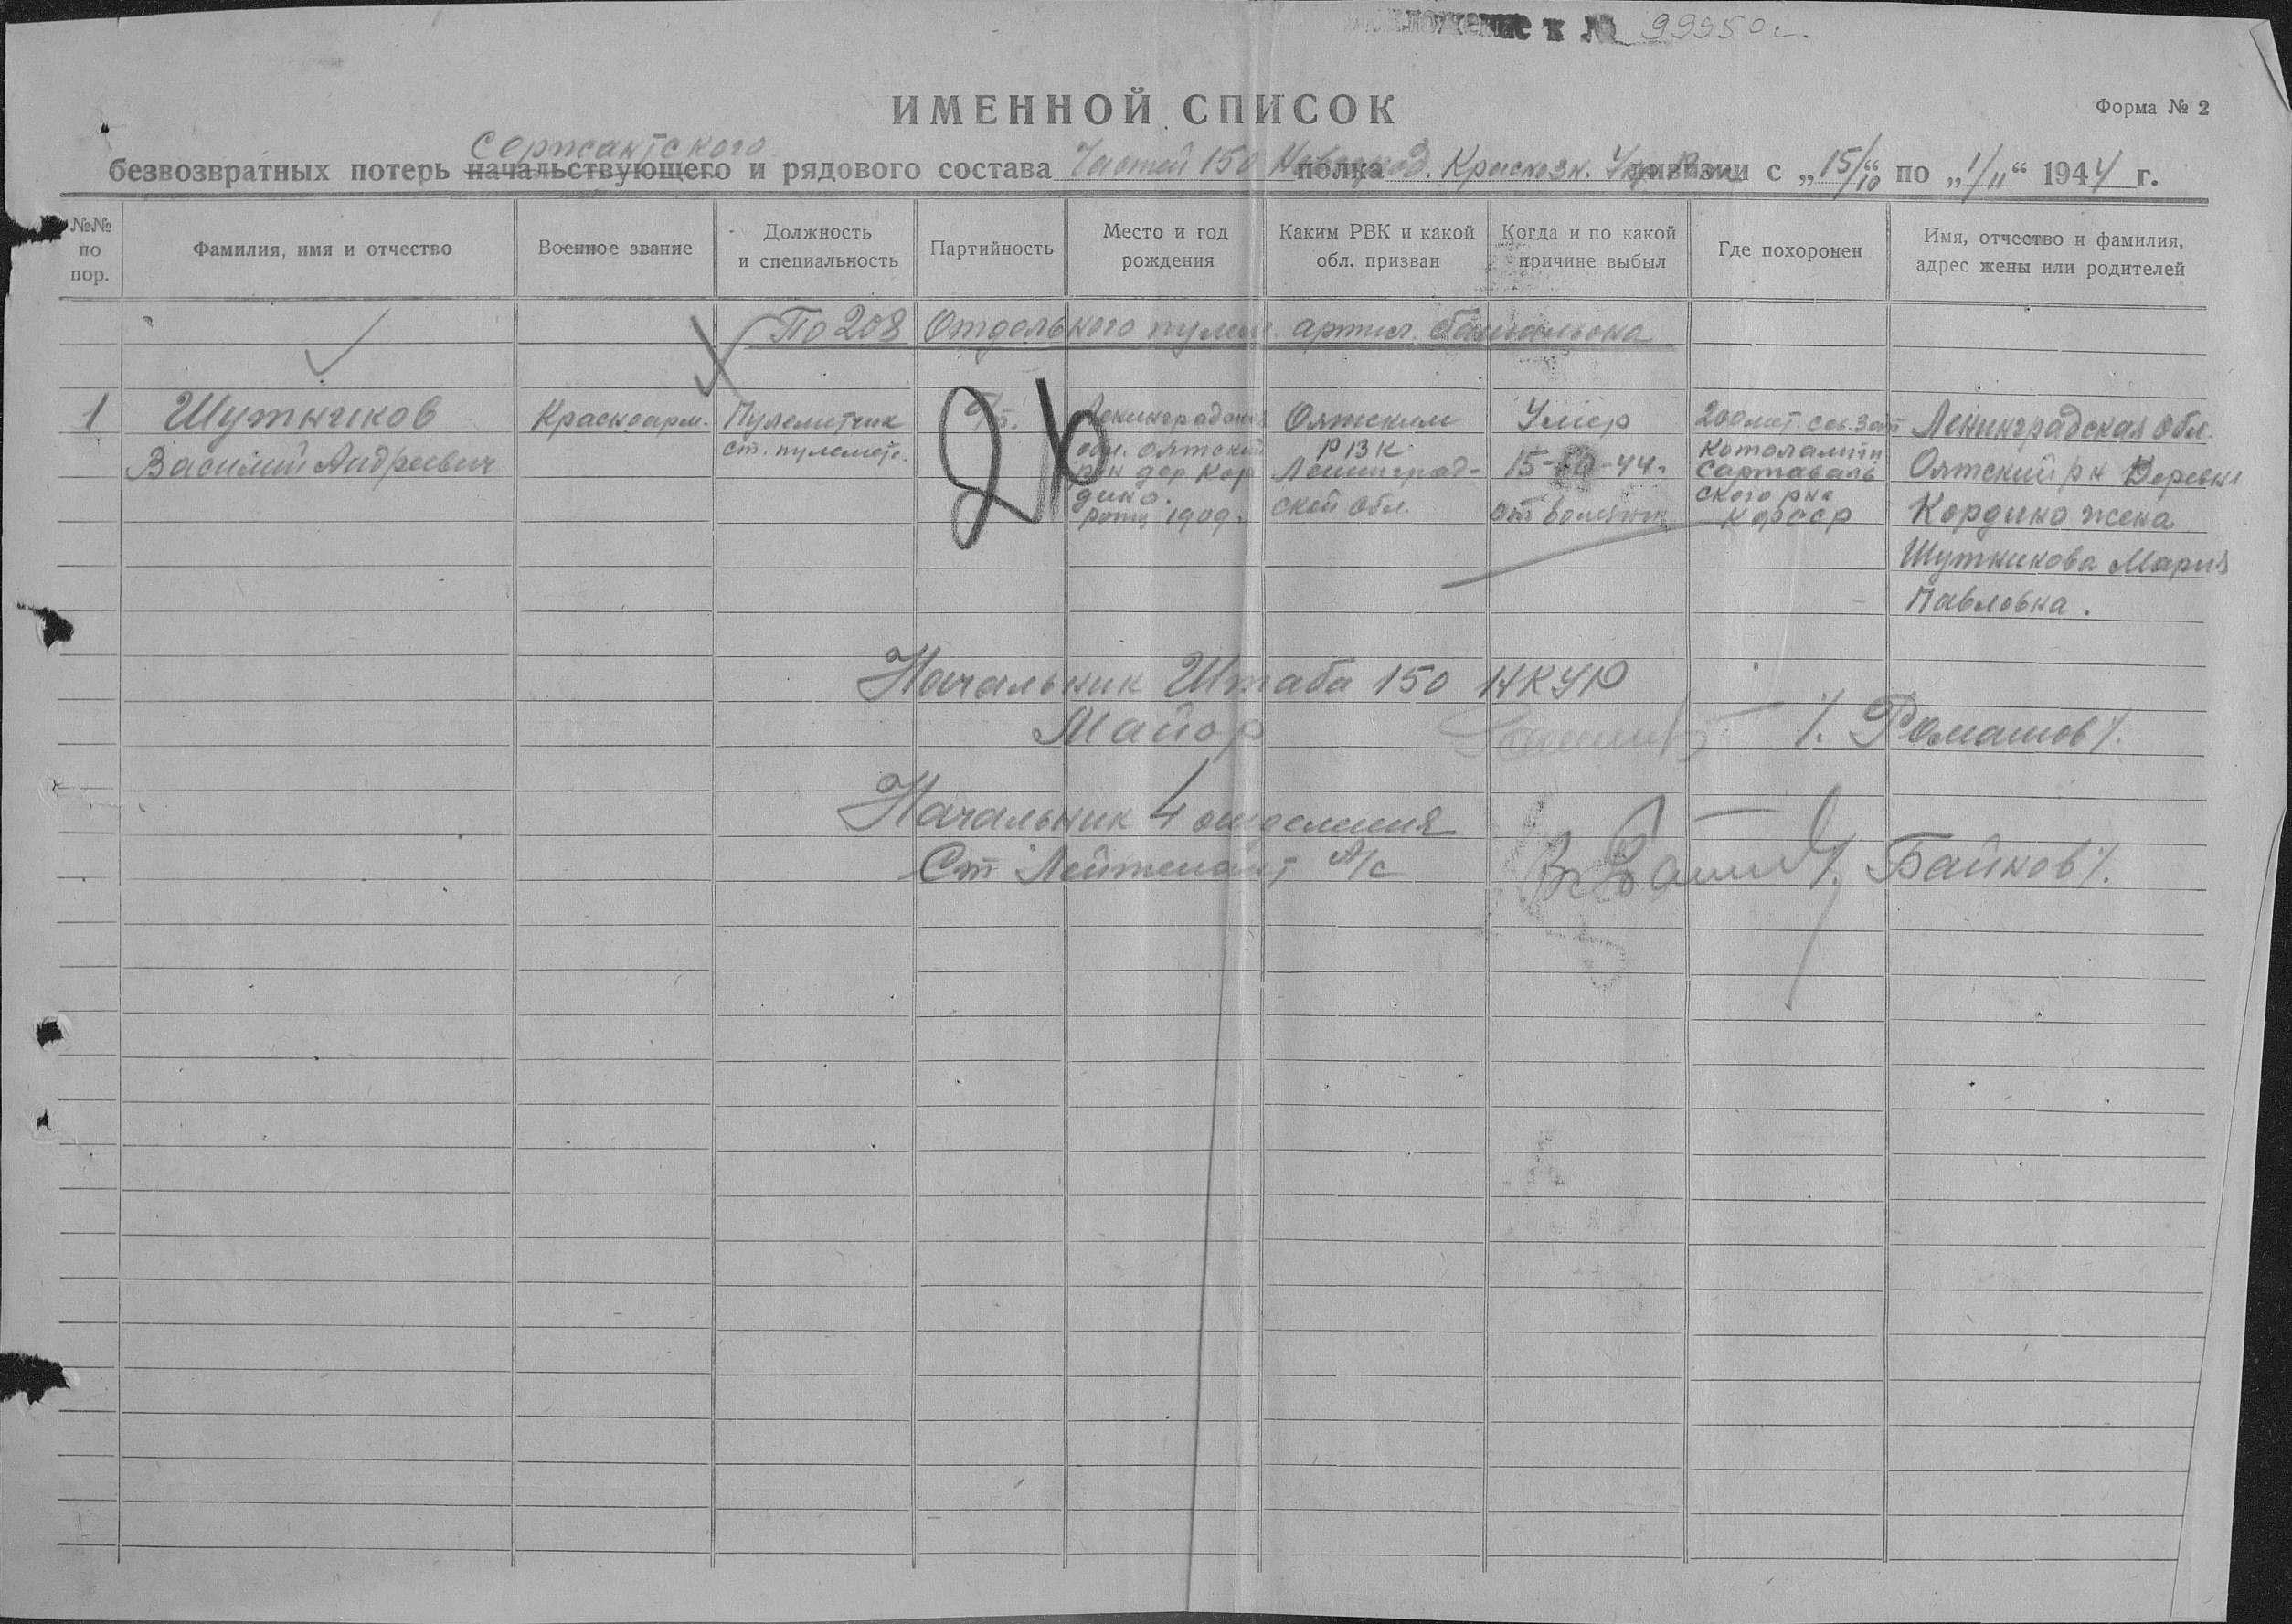 ложение к № 99950с.
ИМЕННОЙ СПИСОК
Форма № 2
Сержантского
безвозвратных потерь начальствующего и рядового состава Частей 150 полка Краснозн. дивизии с „15/10“ по „1/11“ 1944 г.
№№ по пор.
Фамилия, имя и отчество
Военное звание
Должность и специальность
Партийность
Место и год рождения
Каким РВК и какой обл. призван
Когда и по какой причине выбыл
Где похоронен
Имя, отчество и фамилия, адрес жены или родителей
По 208 Отдельного пулем. артил. батальона
1
Шутников
Василий Андреевич
Красноарм.
Пулеметчик
ст. пулемет.
б/п.
Ленинградская
обл. Оятский
р-н дер Кор
дино.
1909.
Оятским
РВК
Ленинград-
ской Обл.
Умер
15-10-44.
от болезни
200 мет. сев. зап
Сартаваль
ского р-на
КФССР
Ленинградская Обл.
Оятский р-н Деревня
Кордино жена
Шутникова Мария
Павловна.
26
Начальник Штаба 150 НКУР
Майор /. Ромашов/.
Начальник 4 отделения
Ст Лейтенант А/с /. Байков/.